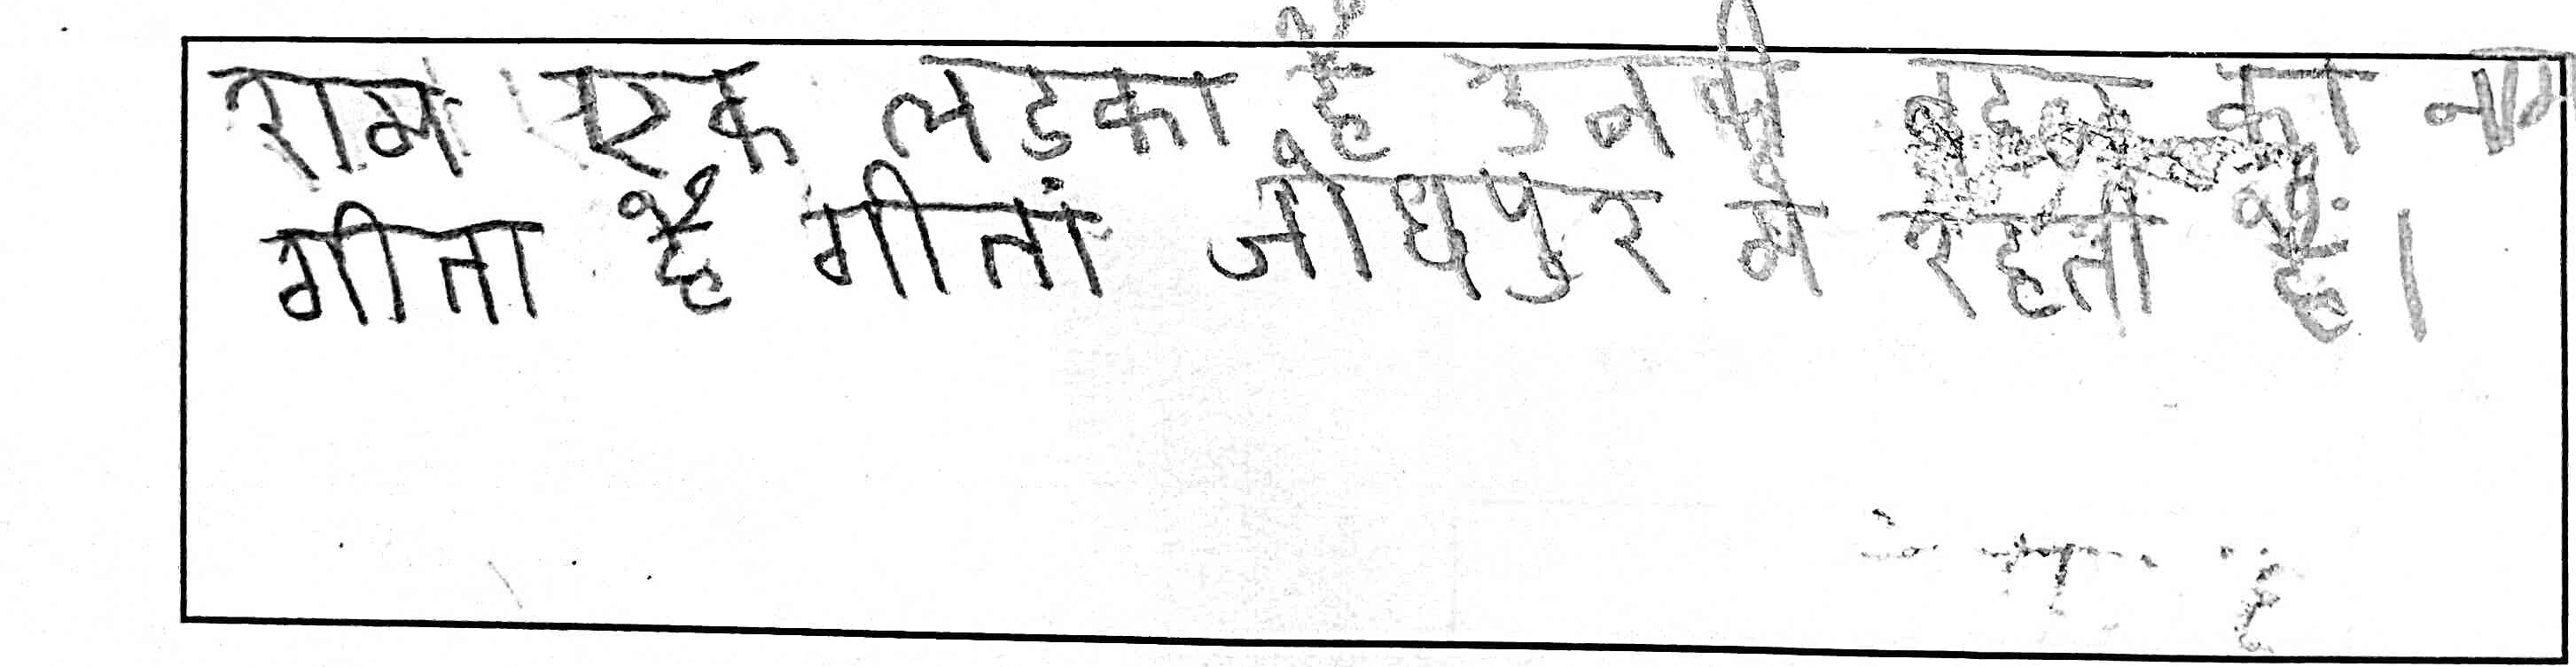 राम एक लडका है उनकी बहन का नाम
गीता है गीता जोधपुर मे रहती हैं।